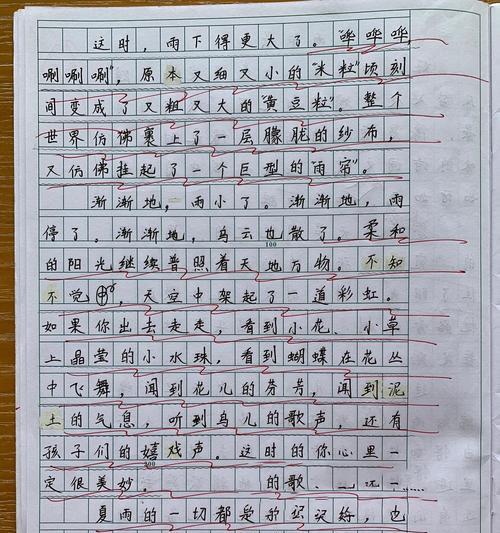 这时，雨下得更大了。“哗哗哗
唰唰唰”，原本又细又小的“米粒”顷刻
间变成了又粗又大的“黄豆粒”。整个
世界仿佛裹上了一层朦胧的纱布，
又仿佛挂起了一个巨型的“雨帘”。
渐渐地，雨小了。渐渐地，雨
停了。渐渐地，乌云也散了。柔和
100
的阳光继续普照着天地万物。不知
不觉中，天空中架起了一道彩虹。
如果你出去走走，看到小花、小草
上晶莹的小水珠，看到蝴蝶在花丛
中飞舞，闻到花儿的芬芳，闻到泥
土的气息，听到鸟儿的歌声，还有
孩子们的嬉戏声。这时的你心里一
200
定很美妙。的歌、
夏雨的一切都是，也